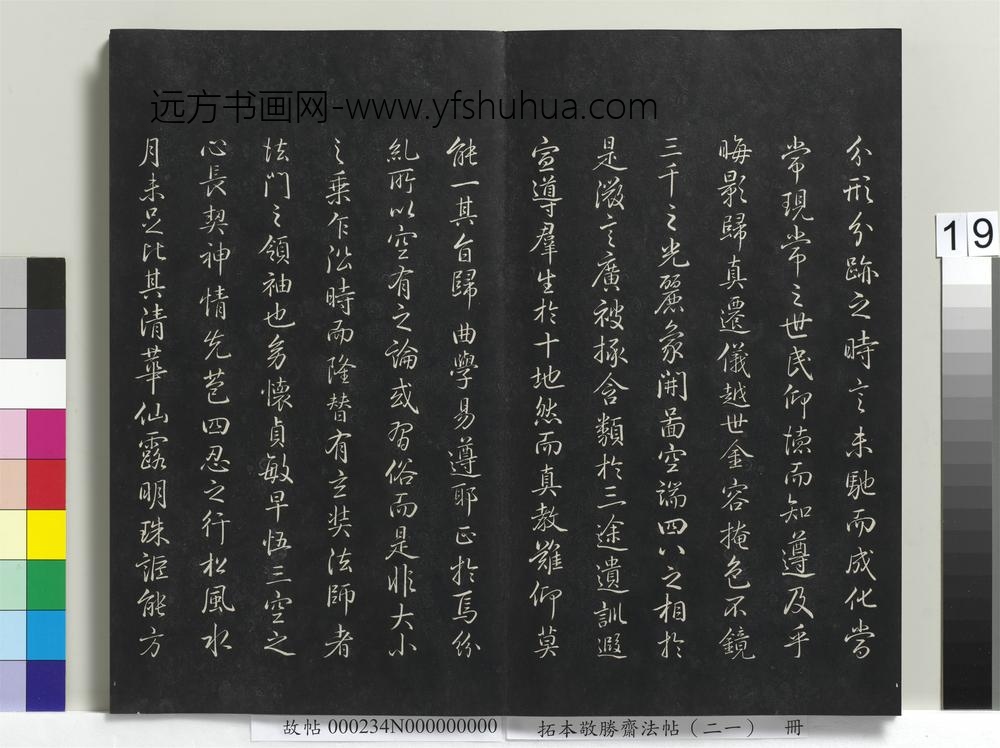 远方书画网-www.yfshuhua.com
分形分跡之時言未馳而成化當
常現常之世民仰德而知遵及乎
晦影歸真遷儀越世金容掩色不鏡
三千之光麗象開啚空端四八之相於
是微言廣被拯含類於三途遺訓遐
宣導羣生於十地然而真教難仰莫
能一其旨歸曲學易遵耶正於焉紛
糺所以空有之論或習俗而是非大小
之乗乍沿時而隆替有玄奘法師者
法門之領袖也多懷貞敏早悟三空之
心長契神情先苞四忍之行松風水
月未足比其清華仙露明珠詎能方
19
故帖 000234N000000000 拓本敬勝齋法帖（二一） 冊